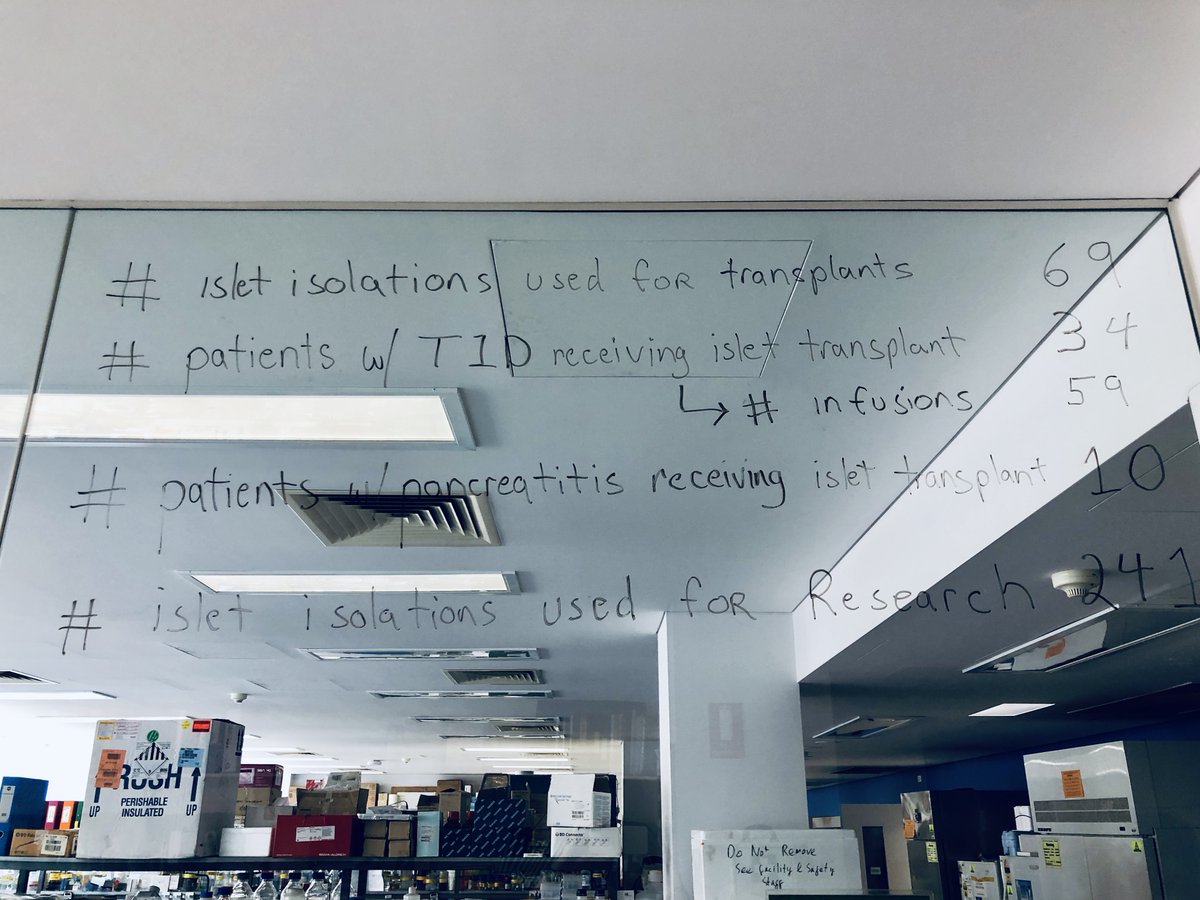 # islet isolations used for transplants 69
# patients w/ T1D receiving islet transplant 34
↳ # infusions 59
# patients w/ pancreatitis receiving islet transplant 10
# islet isolations used for Research 241
RUSH
PERISHABLE
INSULATED
UP
UP
Do Not Remove
See Facility & Safety
Staff